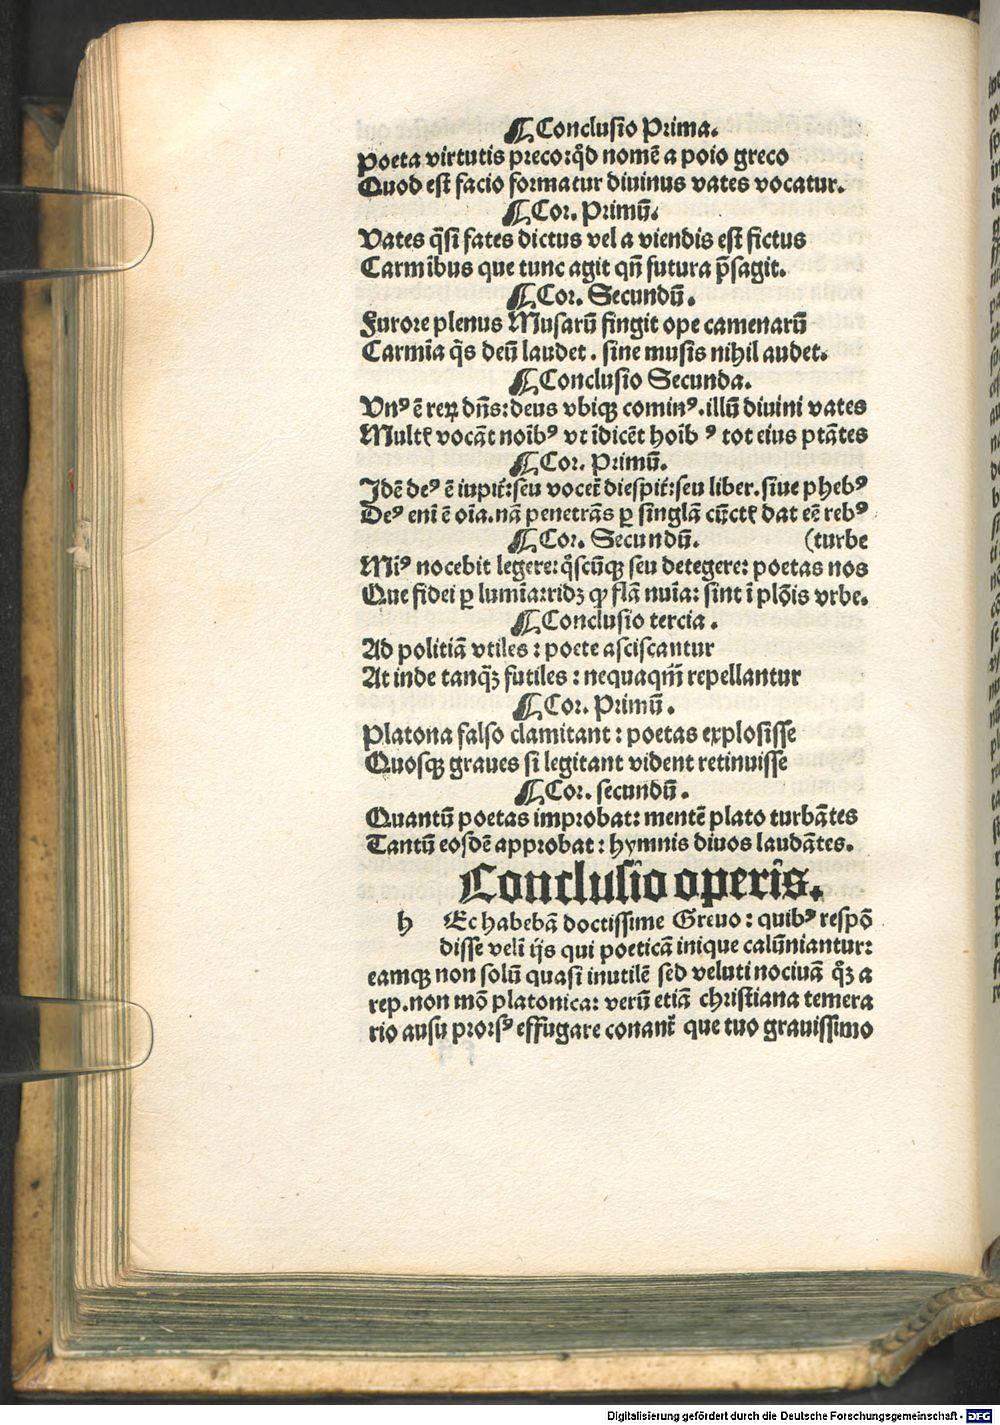 ¶ Conclusio Prima.
Poeta virtutis preco: qd̄ nomē a poio greco
Quod est facio formatur divinus vates vocatur.
¶ Cor. Primū.
Vates q̄si fates dictus vel a viendis est fictus
Carmībus que tunc agit qn̄ futura p̄sagit.
¶ Cor. Secundū.
Furore plenus Musarū fingit ope camenarū
Carmīa q̄s deū laudet. sine musis nihil audet.
¶ Conclusio Secunda.
Vnꝰ ē rex dn̄s: deus vbiqꝫ cominꝰ. illū divini vates
Multꝭ vocāt noībꝰ vt īdicēt hoīb ꝰ tot eius ptātes
¶ Cor. Primū.
Idē deꝰ ē iupit̄: seu vocet̄ diespit̄: seu liber. sive phebꝰ
Deꝰ eni ē oīa. nā penetrās ꝑ singlā cūctꝭ dat eē rebꝰ
¶ Cor. Secundū. (turbe
Miꝰ nocebit legere: q̄scūqꝫ seu detegere: poetas nos
Que fidei ꝑ lumīa: ridꝫ ꝙ flā nuīa: sint ī plōis vrbe.
¶ Conclusio tercia.
Ad politiā vtiles: poete asciscantur
At inde tanq̄ꝫ futiles: nequaqm̄ repellantur
¶ Cor. Primū.
Platona falso clamitant: poetas explosisse
Quosqꝫ graves si legitant vident retinuisse
¶ Cor. secundū.
Quantū poetas improbat: mentē plato turbātes
Tantū eosdē approbat: hymnis divos laudātes.
Conclusio operis.
h Ec habebā doctissime Grevo: quibꝰ respō
disse velī ijs qui poeticā inique calūniantur:
eamqꝫ non solū quasi inutilē sed veluti nocivā q̄ꝫ a
rep. non mō platonica: verū etiā christiana temera
rio ausu prorsꝰ effugare conant̄ que tuo gravissimo
Digitalisierung gefördert durch die Deutsche Forschungsgemeinschaft - DFG